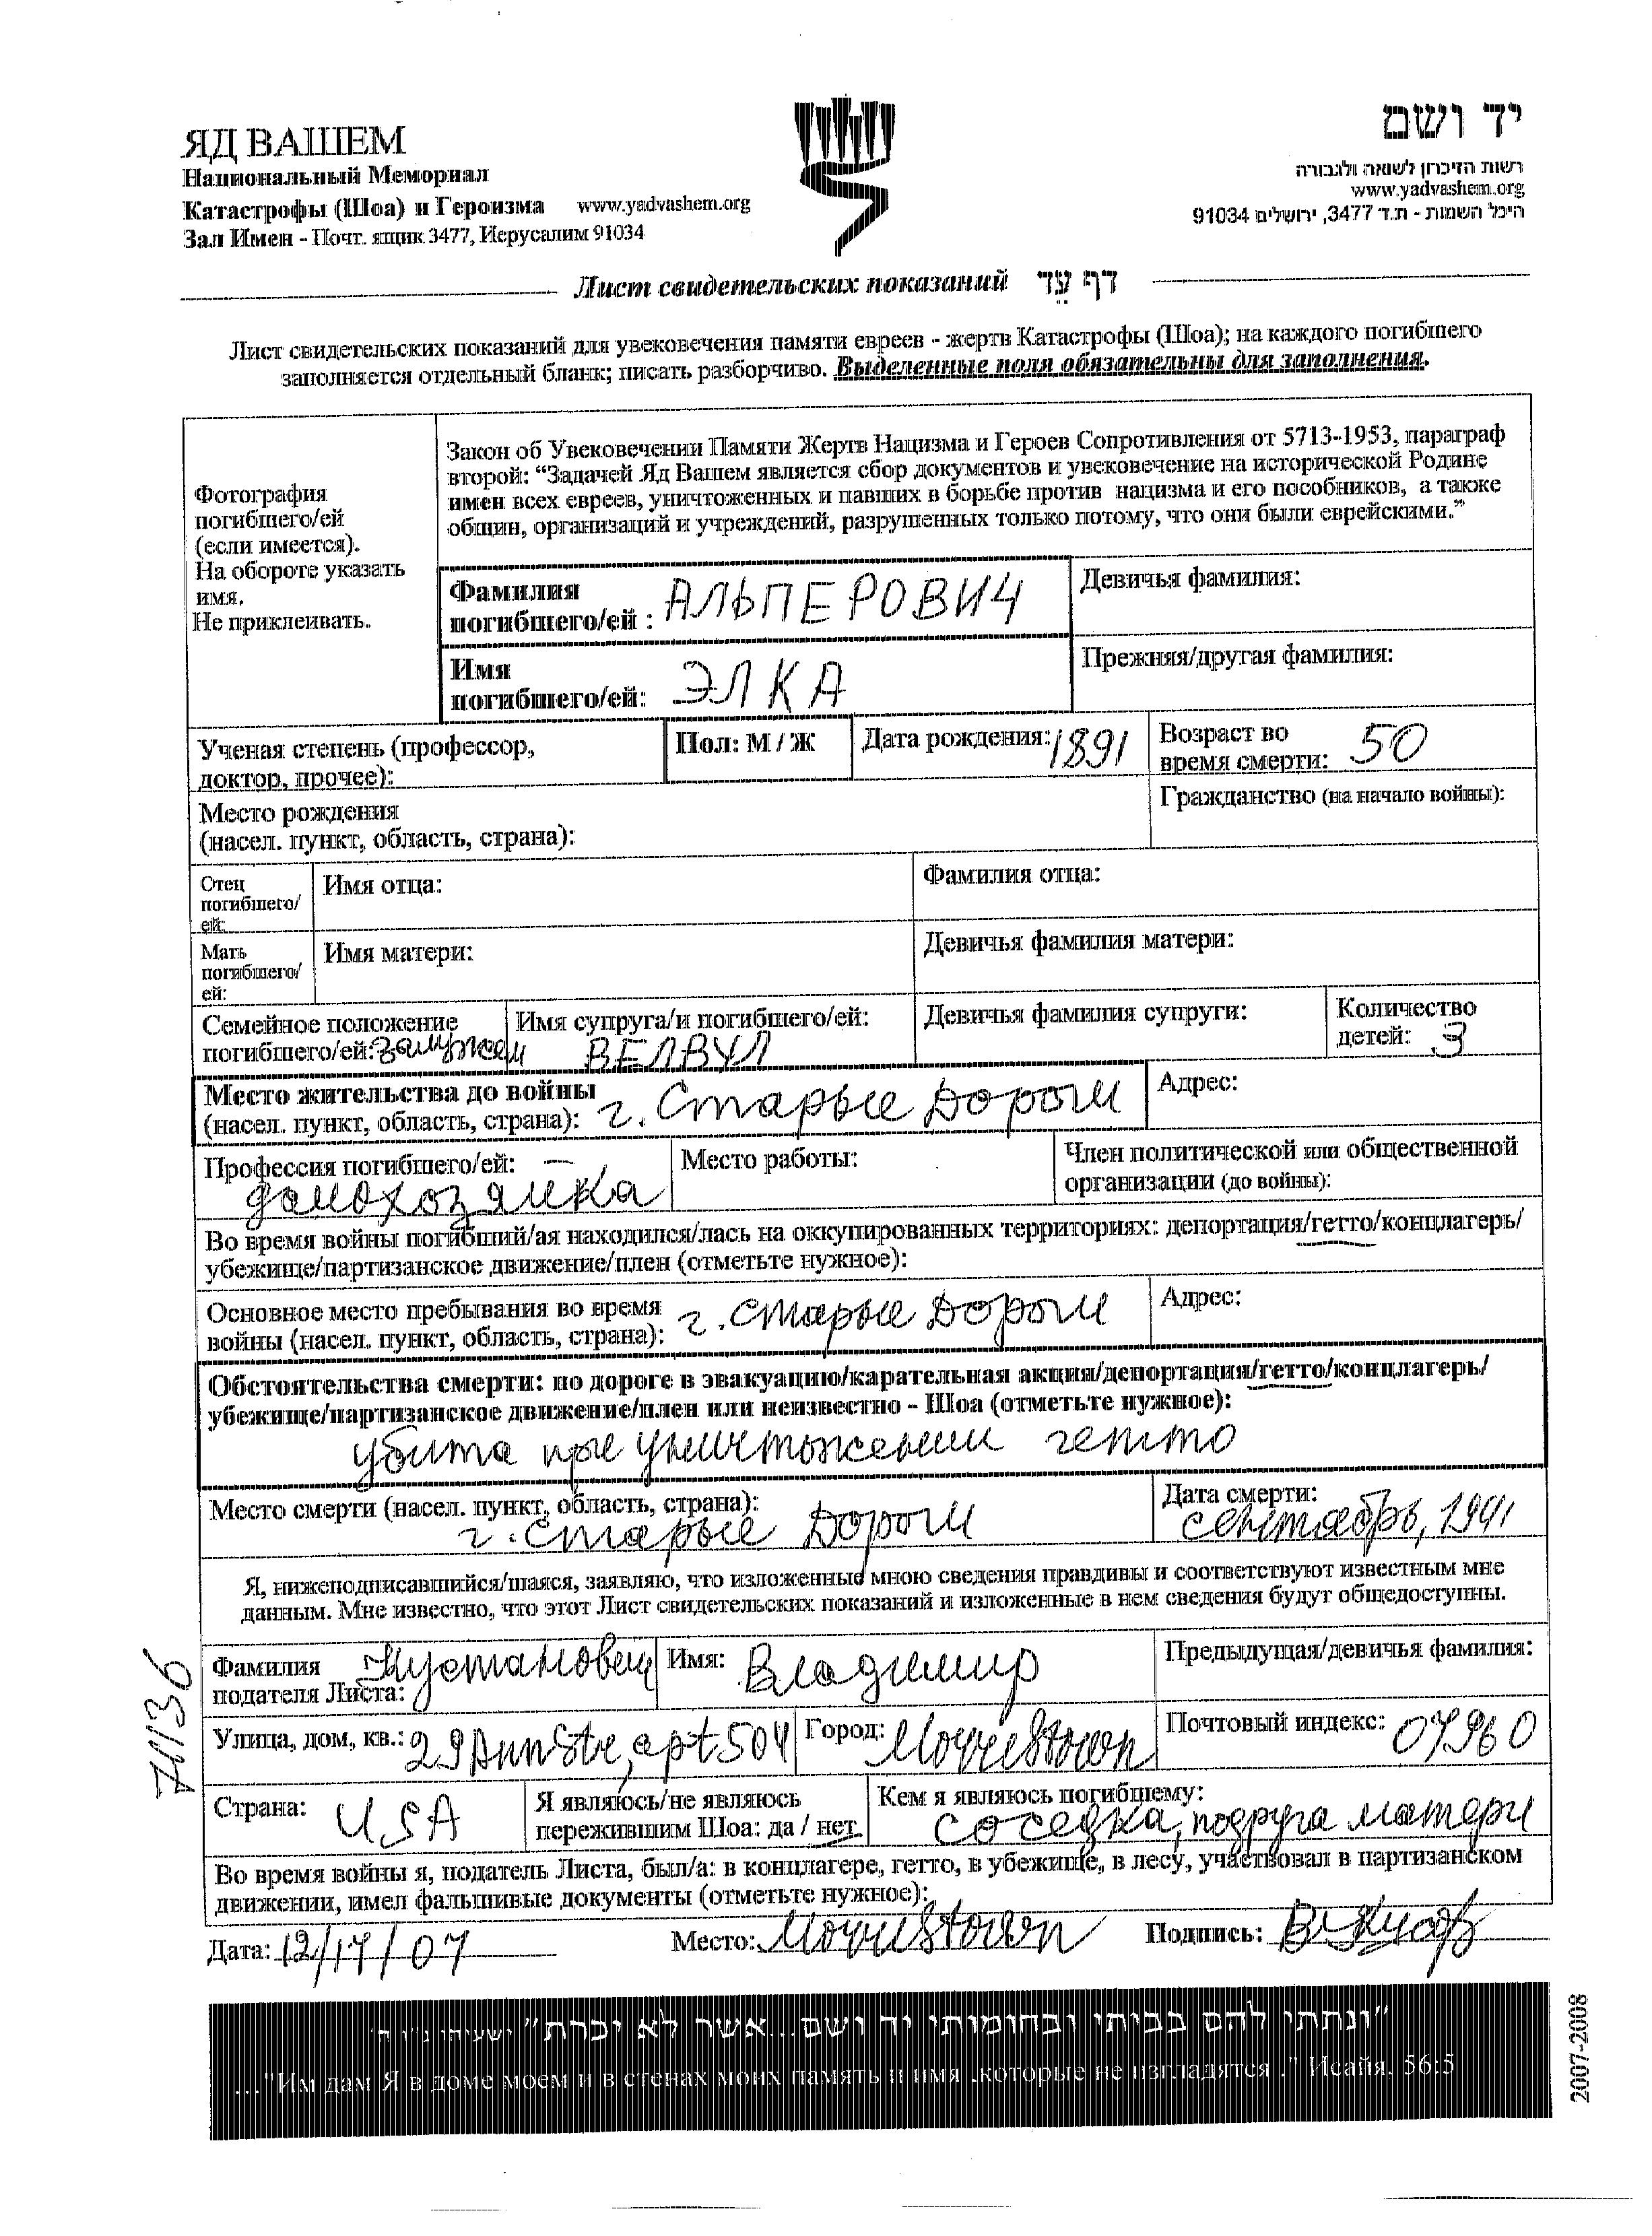 ЯД ВАШЕМ
Национальный Мемориал
Катастрофы (Шоа) и Героизма www.yadvashem.org
Зал Имен - Почт. ящик 3477, Иерусалим 91034
יד ושם
רשות הזיכרון לשואה ולגבורה
www.yadvashem.org
היכל השמות - ת.ד 3477, ירושלים 91034
Лист свидетельских показаний דף עד
Лист свидетельских показаний для увековечения памяти евреев - жертв Катастрофы (Шоа); на каждого погибшего
заполняется отдельный бланк; писать разборчиво. Выделенные поля обязательны для заполнения.
Фотография
погибшего/ей
(если имеется).
На обороте указать
имя.
Не приклеивать.
Закон об Увековечении Памяти Жертв Нацизма и Героев Сопротивления от 5713-1953, параграф
второй: “Задачей Яд Вашем является сбор документов и увековечение на исторической Родине
имен всех евреев, уничтоженных и павших в борьбе против нацизма и его пособников, а также
общин, организаций и учреждений, разрушенных только потому, что они были еврейскими.”
Фамилия
погибшего/ей : АЛЬПЕРОВИЧ
Девичья фамилия:
Имя
погибшего/ей: ЭЛКА
Прежняя/другая фамилия:
Ученая степень (профессор,
доктор, прочее):
Пол: М / Ж
Дата рождения: 1891
Возраст во
время смерти: 50
Место рождения
(насел. пункт, область, страна):
Гражданство (на начало войны):
Отец
погибшего/
ей:
Имя отца:
Фамилия отца:
Мать
погибшего/
ей:
Имя матери:
Девичья фамилия матери:
Семейное положение
погибшего/ей: замужем
Имя супруга/и погибшего/ей:
ВЕЛВУЛ
Девичья фамилия супруги:
Количество
детей: 3
Место жительства до войны
(насел. пункт, область, страна): г. Старые Дороги
Адрес:
Профессия погибшего/ей: —
домохозяйка
Место работы:
Член политической или общественной
организации (до войны):
Во время войны погибший/ая находился/лась на оккупированных территориях: депортация/гетто/концлагерь/
убежище/партизанское движение/плен (отметьте нужное):
Основное место пребывания во время
войны (насел. пункт, область, страна): г. Старые Дороги
Адрес:
Обстоятельства смерти: по дороге в эвакуацию/карательная акция/депортация/гетто/концлагерь/
убежище/партизанское движение/плен или неизвестно - Шоа (отметьте нужное):
убита при уничтожении гетто
Место смерти (насел. пункт, область, страна):
г. Старые Дороги
Дата смерти:
сентябрь, 1941
Я, нижеподписавшийся/шаяся, заявляю, что изложенные мною сведения правдивы и соответствуют известным мне
данным. Мне известно, что этот Лист свидетельских показаний и изложенные в нем сведения будут общедоступны.
Фамилия
подателя Листа: Кустановец
Имя: Владимир
Предыдущая/девичья фамилия:
Улица, дом, кв.: 29 Ann Str, apt 504
Город: Morristown
Почтовый индекс: 07960
Страна: USA
Я являюсь/не являюсь
пережившим Шоа: да / нет
Кем я являюсь погибшему:
соседка, подруга матери
Во время войны я, податель Листа, был/а: в концлагере, гетто, в убежище, в лесу, участвовал в партизанском
движении, имел фальшивые документы (отметьте нужное):
Дата: 12/17/07
Место: Morristown
Подпись:
71136
"ונתתי להם בביתי ובחומותי יד ושם...אשר לא יכרת" ישעיהו נ"ו ה'
..."Им дам Я в доме моем и в стенах моих память и имя ,которые не изгладятся ." Исайя, 56:5
2007-2008